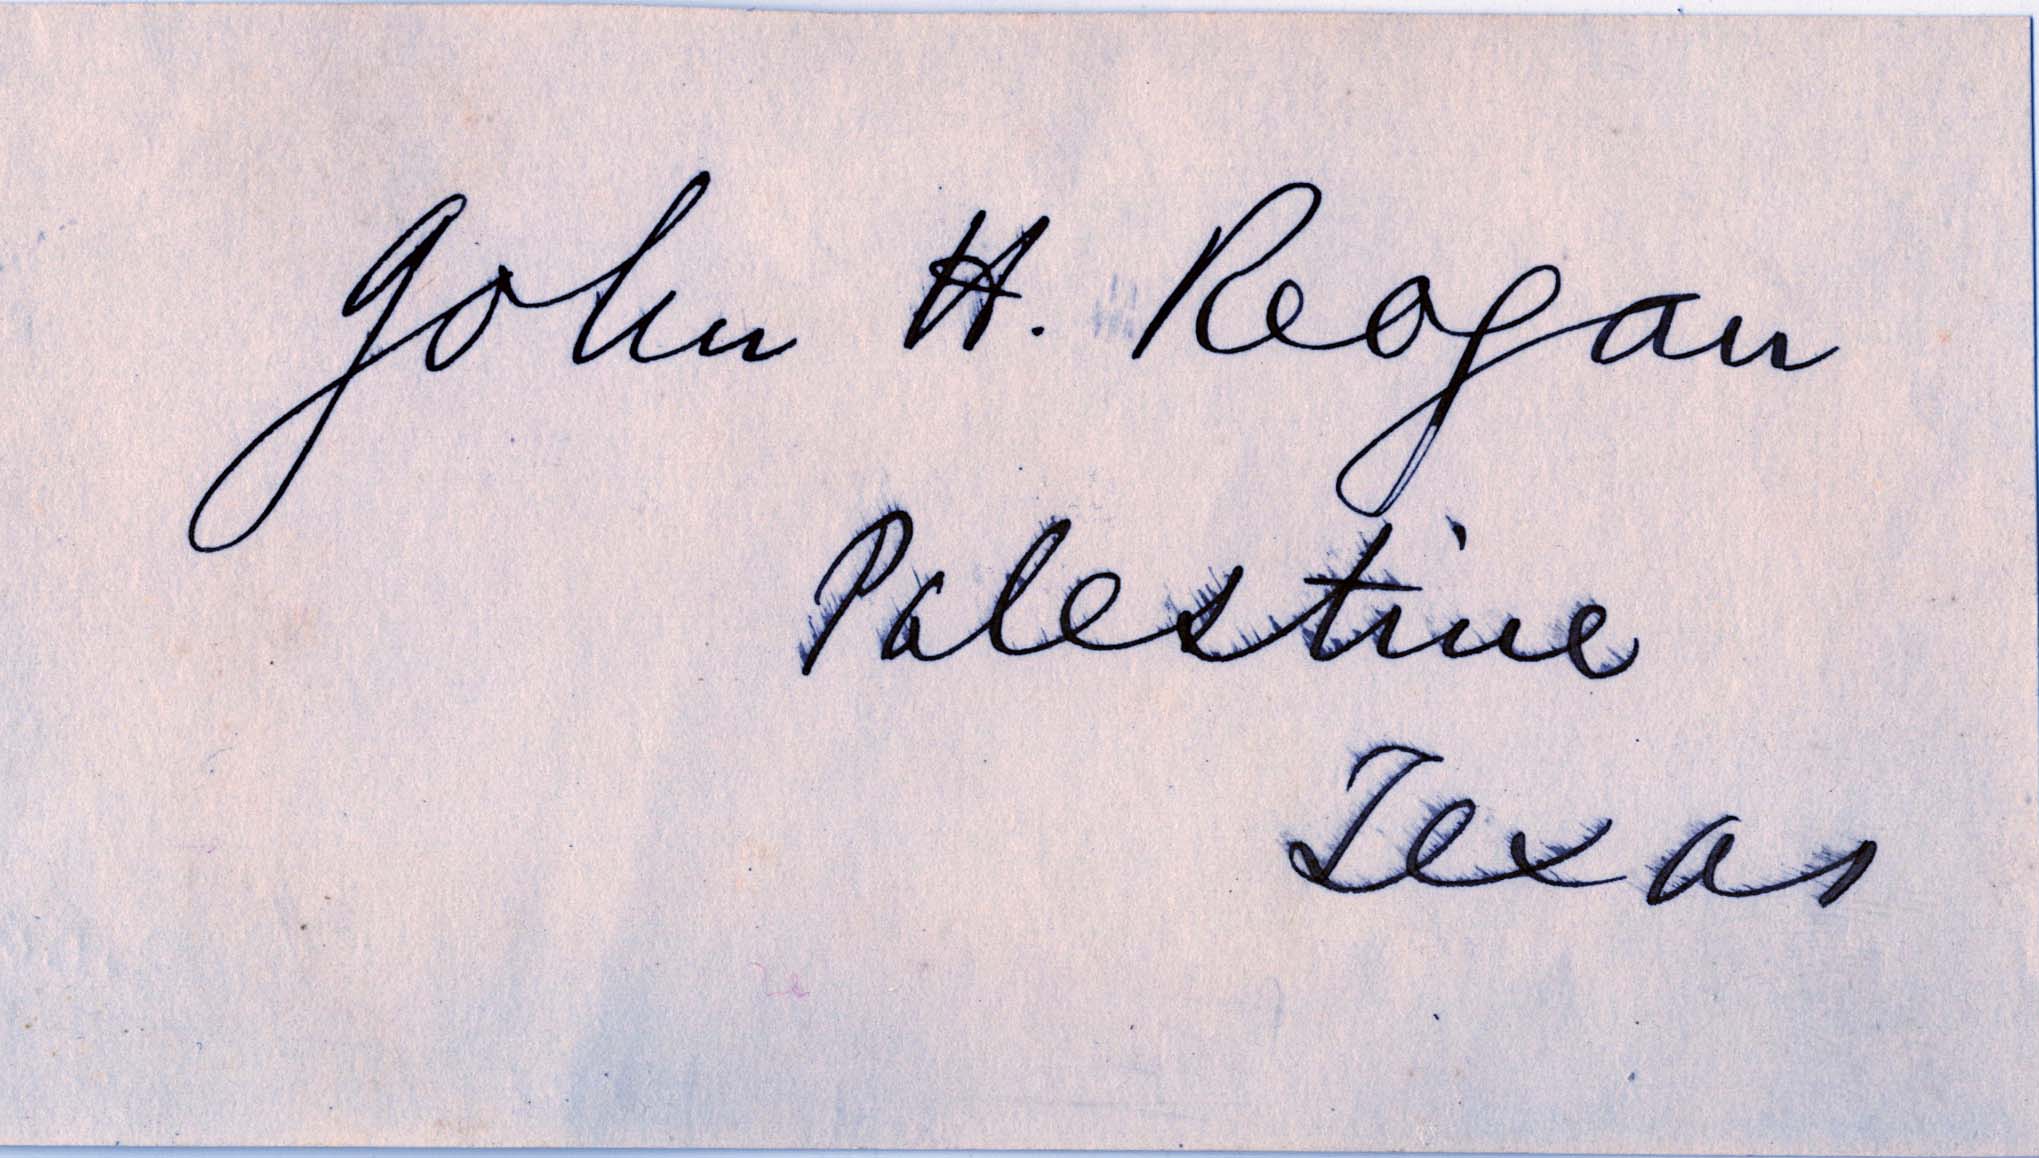 John H. Reagan
Palestine
Texas